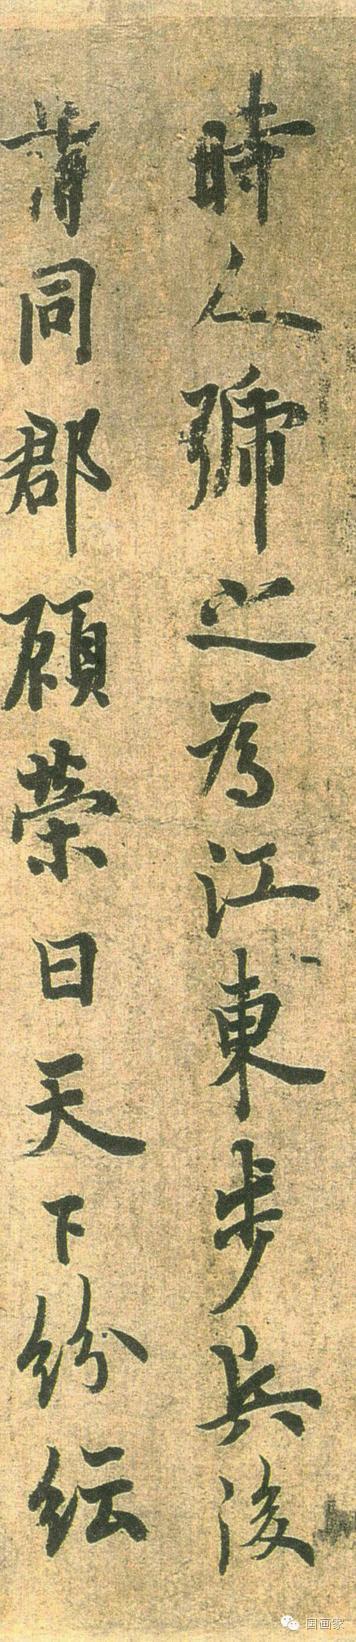 時人號之為江東步兵後
謂同郡顧榮曰天下紛紜
国画家